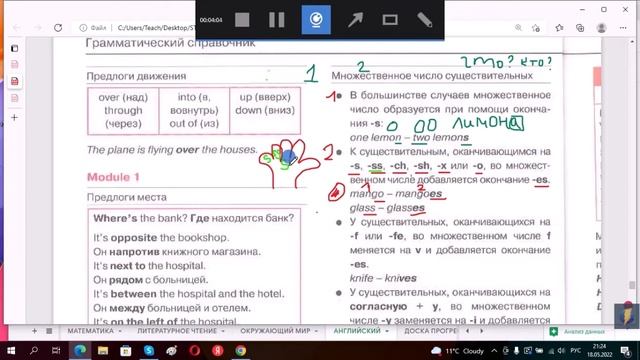 C:/Users/Teach/Desktop/ST
00:04:04
Грамматический справочник
что? кто?
1 2
Предлоги движения
over (над)
through
(через)
into (в,
вовнутрь)
out of (из)
up (вверх)
down (вниз)
The plane is flying over the houses.
Module 1
Предлоги места
Where's the bank? Где находится банк?
It's opposite the bookshop.
Он напротив книжного магазина.
It's next to the hospital.
Он рядом с больницей.
It's between the hospital and the hotel.
Он между больницей и отелем.
It's on the left of the hospital.
Множественное число существительных
1
В большинстве случаев множественное
число образуется при помощи оконча-
ния -s:
лимона
one lemon – two lemons
2
К существительным, оканчивающимся на
-s, -ss, -ch, -sh, -x или -o, во множест-
венном числе добавляется окончание -es.
1 2
mango – mangoes
glass – glasses
У существительных, оканчивающихся на
-f или -fe, во множественном числе f
меняется на v и добавляется окончание
-es.
knife – knives
У существительных, оканчивающихся на
согласную + y, во множественном
числе -y заменяется на -i и добавляется
МАТЕМАТИКА
ЛИТЕРАТУРНОЕ ЧТЕНИЕ
ОКРУЖАЮЩИЙ МИР
АНГЛИЙСКИЙ
ДОСКА ПРОГРЕС
Анализ данных
11°C Cloudy
РУС
21:24
18.05.2022